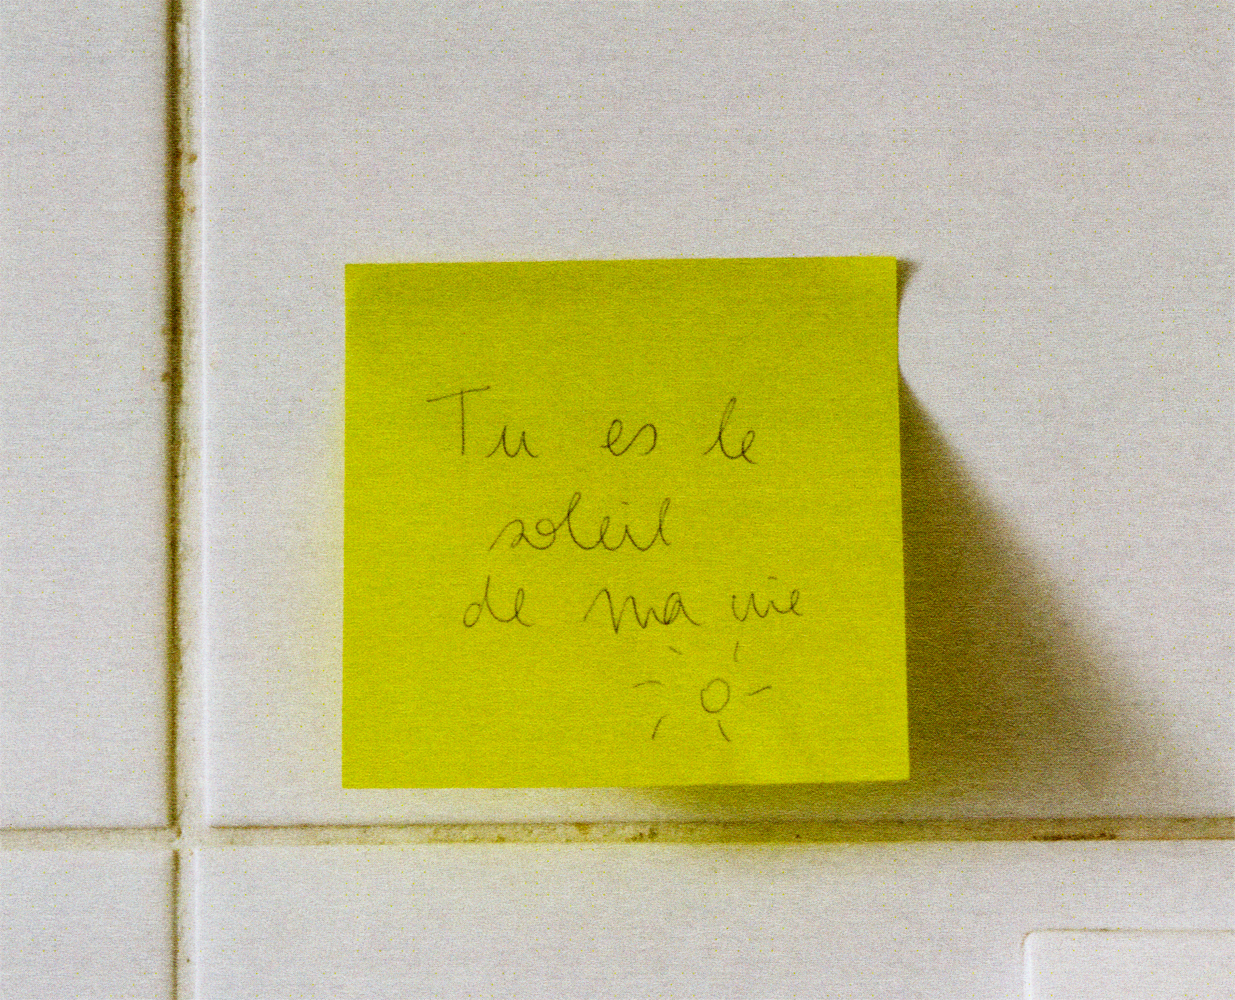 Tu es le
soleil
de ma vie